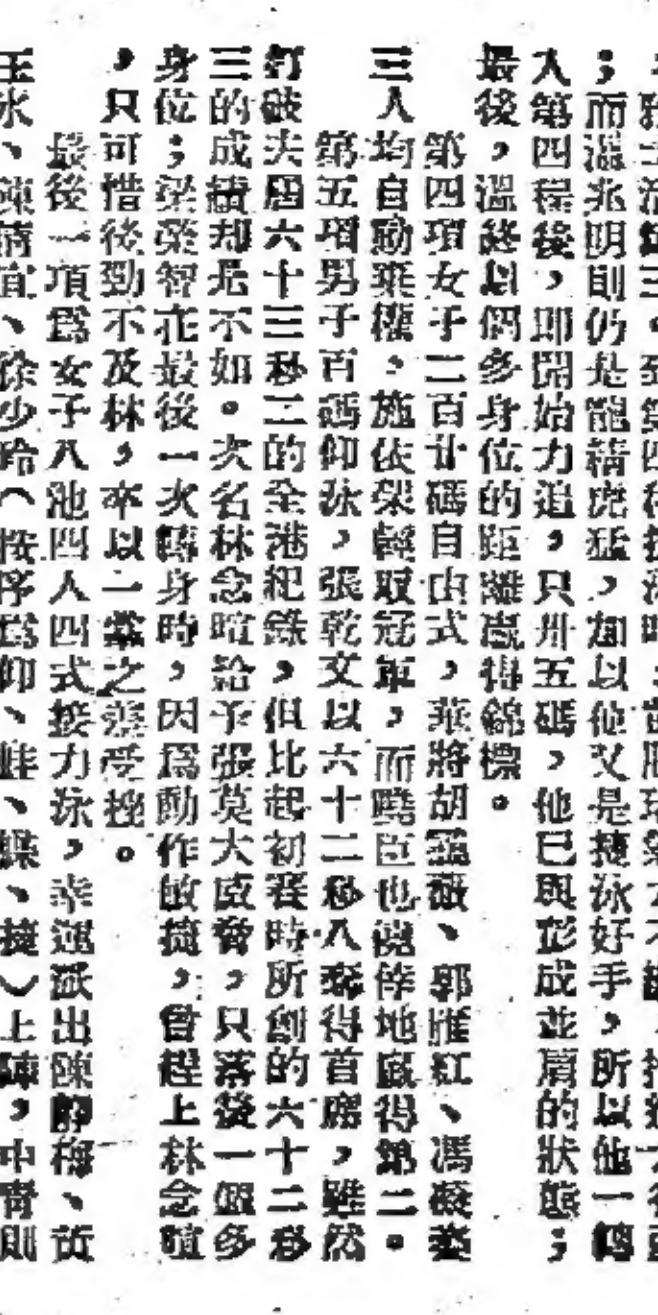 ；而溫兆明則仍是龍精虎猛，加以他又是捷泳好手，所以他一轉
入第四程後，即開始力追，只卅五碼，他已與彭成並肩的狀態；
最後，溫終以個多身位的距離贏得錦標。
第四項女子二百廿碼自由式，華將胡、郭雁紅、馮
三人均自動棄權，施依梁輕取冠軍，而曉臣也僥倖地贏得第二。
第五項男子百碼仰泳，張乾文以六十二秒八奪得首席，雖然
打破夫居六十三秒二的全港紀錄，但比起初賽時所創的六十二秒
三的成績却是不如。次名林念暄給予張莫大威脅，只落後一個多
身位；梁榮智在最後一次轉身時，因為動作敏捷，曾趕上林念暄
，只可惜後勁不及林，卒以一掌之差受挫。
最後一項為女子八池四人四式接力泳，幸運派出陳靜梅、黃
玉冰、陳倩宜、徐少玲（按序為仰、蛙、蝶、捷）上陣，中青則